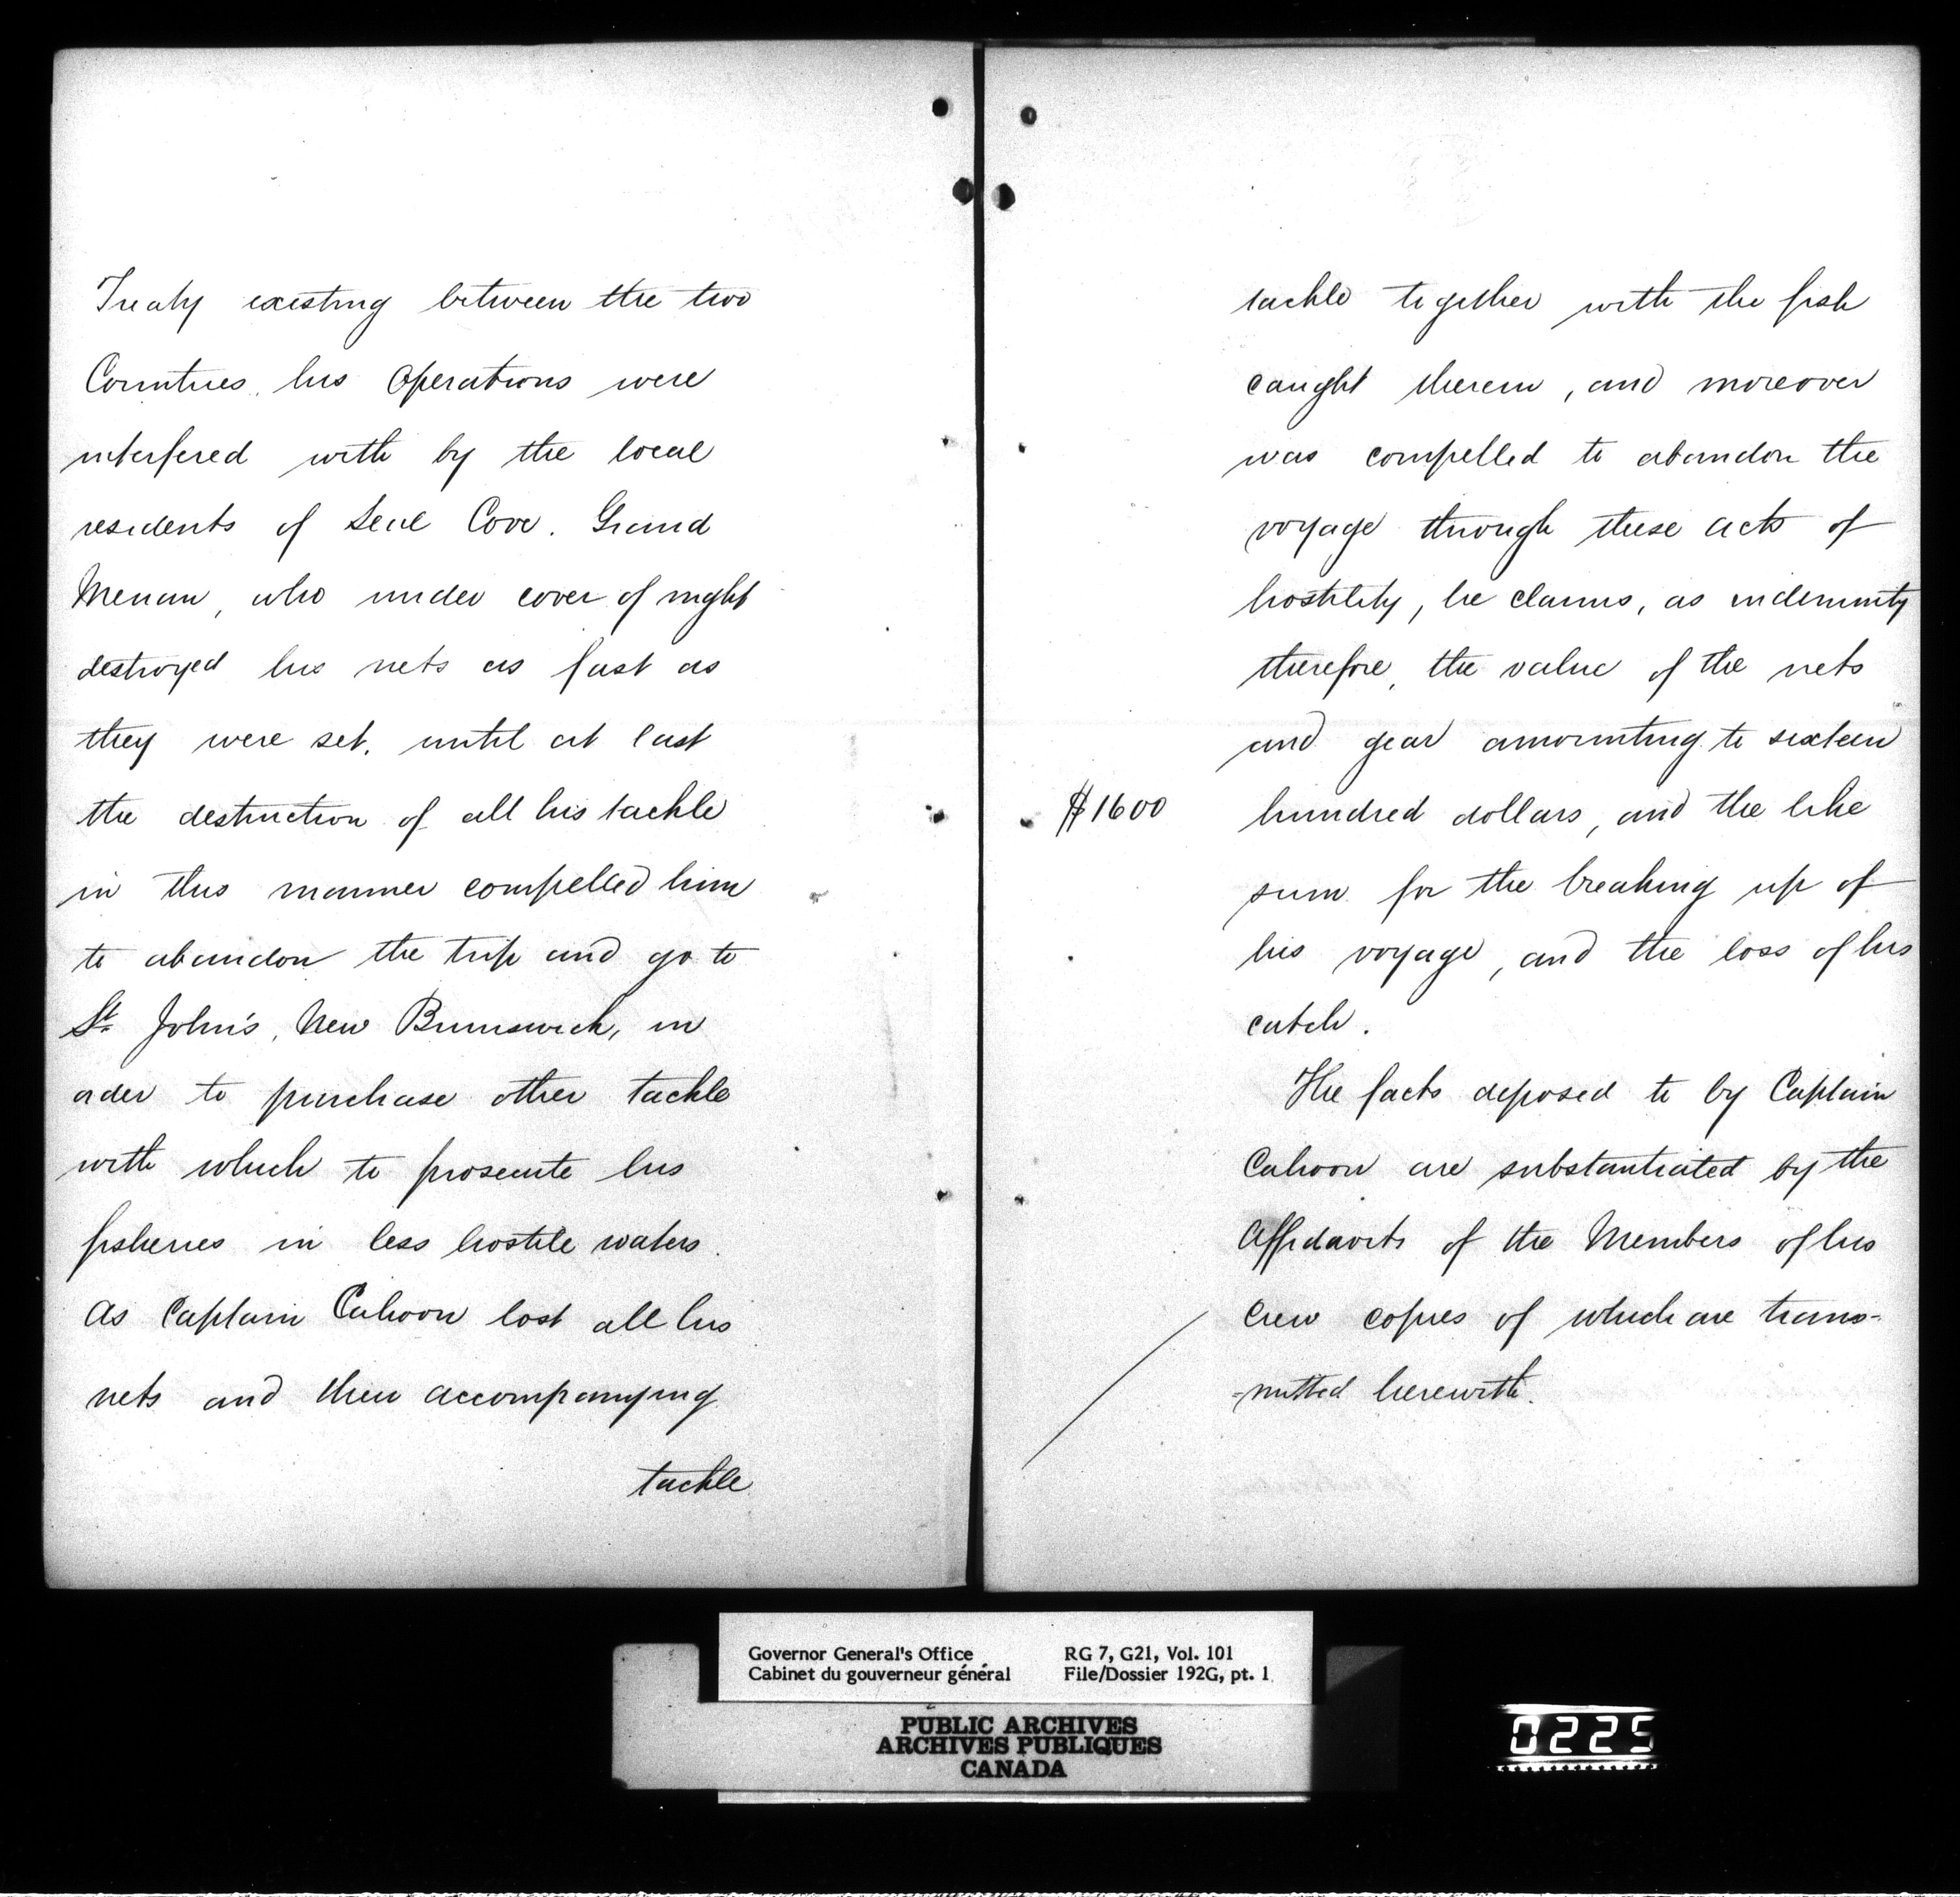 Treaty existing between the two
Countries, his Operations were
interfered with by the local
residents of Seal Cove. Grand
Menan, who under cover of night
destroyed his nets as fast as
they were set, until at last
the destruction of all his tackle
in this manner compelled him
to abandon the trip and go to
St. John's, New Brunswick, in
order to purchase other tackle
with which to prosecute his
fisheries in less hostile waters.
As Captain Cahoon lost all his
nets and their accompanying
tackle
tackle together with the fish
caught therein, and moreover
was compelled to abandon the
voyage through these acts of
hostility, he claims, as indemnity
therefore, the value of the nets
and gear amounting to sixteen
$1600 hundred dollars, and the like
sum for the breaking up of
his voyage, and the loss of his
catch.
The facts deposed to by Captain
Cahoon are substantiated by the
Affidavits of the Members of his
Crew copies of which are trans-
-mitted herewith.
Governor General's Office RG 7, G21, Vol. 101
Cabinet du gouverneur général File/Dossier 192G, pt. 1
PUBLIC ARCHIVES
ARCHIVES PUBLIQUES
CANADA
0225